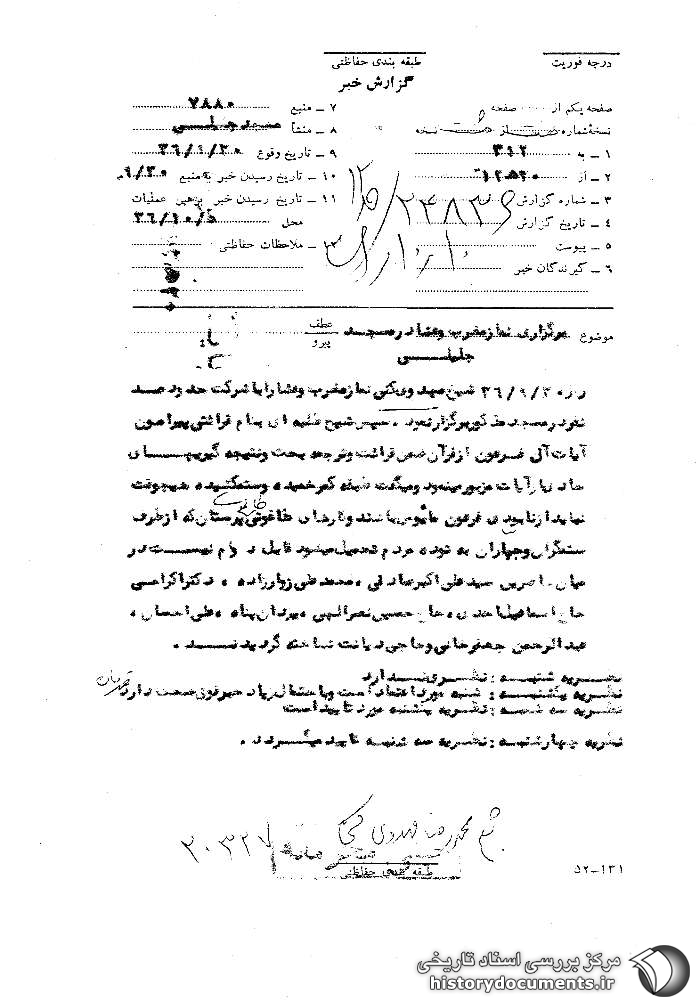 درجه فوریت
طبقه بندی حفاظتی
گزارش خبر
صفحه یکم از صفحه
نسخه شماره از هشت نسخه
۱ ــ به ۳۱۲
۲ ــ از
۳ ــ شماره گزارش
۴ ــ تاریخ گزارش
۵ ــ پیوست
۶ ــ گیرندگان خبر
۷ ــ منبع ۷۸۸۰
۸ ــ منشأ مسجد جلیلی
۹ ــ تاریخ وقوع
۱۰ ــ تاریخ رسیدن خبر به منبع
۱۱ ــ تاریخ رسیدن خبر به رهبر عملیات
محل ۳۶/۱۰/۵
۱۲ ــ ملاحظات حفاظتی
موضوع برگزاری نماز مغرب و عشا در مسجد
جلیلی
عطف
پیرو
روز ۳۶/۹/۳۰ شیخ مهدوی کنی نماز مغرب و عشا را با شرکت حدود صد
نفر در مسجد مذکور برگزار نمود . سپس شیخ بنام قرائتی پیرامون
آیات آل فرعون از قرآن ضمن قرائت و ترجمه بحث و نتیجه گیریهای
آیات مزبور مینمود و میگفت طبقه کمر خمیده و ستمکشیده هیچوقت
نباید از نابودی فرعون مأیوس باشند و طاغوتی پرستان که از طرف
ستمگران و جباران به توده مردم تحمیل میشود قابل دوام نیست در
میان حاضرین سید علی اکبر صادقی ، محمد علی زوارزاده ، دکتر اکرامی
حاج اسماعیل ، حاج حسین نصرالهی ، یزدان پناه ، علی احسان ،
عبدالرحمن جعفرخانی و حاجی دیانت شناخته گردیدند .
نظریه شنبه : نظری ندارد
نظریه یکشنبه : شنبه مورد اعتماد است و با احتمال زیاد خبر فوق صحت دارد
نظریه سه شنبه : نظریه یکشنبه مورد تایید است
نظریه چهارشنبه : نظریه سه شنبه تایید میگردد .
محمدرضا مهدوی
۲۰۳۲۷
طبقه بندی حفاظتی
۵۲-۱۳۱
مرکز بررسی اسناد تاریخی
historydocuments.ir